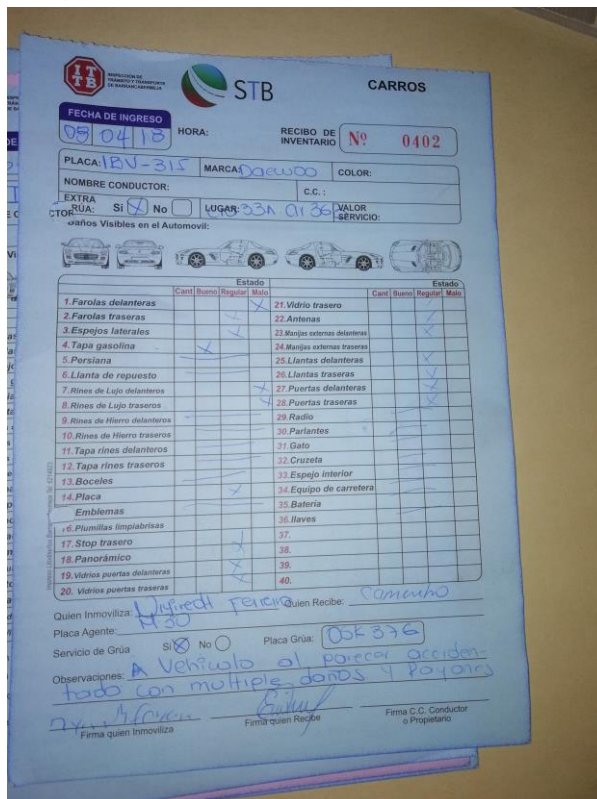 IT
TB
INSPECCIÓN DE
TRÁNSITO Y TRANSPORTE
DE BARRANCABERMEJA
STB
CARROS
FECHA DE INGRESO
05 04 18
HORA:
RECIBO DE INVENTARIO
Nº 0402
PLACA: IBV-315 MARCA: Daewoo COLOR:
NOMBRE CONDUCTOR: C.C.:
EXTRA RÚA: Si X No LUGAR: 33A 36 VALOR SERVICIO:
Daños Visibles en el Automovil:
Estado Estado
Cant Bueno Regular Malo Cant Bueno Regular Malo
1. Farolas delanteras X 21. Vidrio trasero
2. Farolas traseras 22. Antenas
3. Espejos laterales 23. Manijas externas delanteras
4. Tapa gasolina X 24. Manijas externas traseras
5. Persiana 25. Llantas delanteras
6. Llanta de repuesto 26. Llantas traseras
7. Rines de Lujo delanteros 27. Puertas delanteras
8. Rines de Lujo traseros 28. Puertas traseras
9. Rines de Hierro delanteros 29. Radio
10. Rines de Hierro traseros 30. Parlantes
11. Tapa rines delanteros 31. Gato
12. Tapa rines traseros 32. Cruzeta
13. Boceles 33. Espejo interior
14. Placa 34. Equipo de carretera
Emblemas 35. Bateria
6. Plumillas limpiabrisas 36. llaves
17. Stop trasero 37.
18. Panorámico 38.
19. Vidrios puertas delanteras 39.
20. Vidrios puertas traseras 40.
Quien Inmoviliza: Quien Recibe: Camacho
Placa Agente:
Servicio de Grúa Si X No Placa Grúa: OSK376
Observaciones: A Vehiculo al parecer acciden-
tado con multiple daños y Rayones
Firma quien Inmoviliza Firma quien Recibe Firma C.C. Conductor
o Propietario